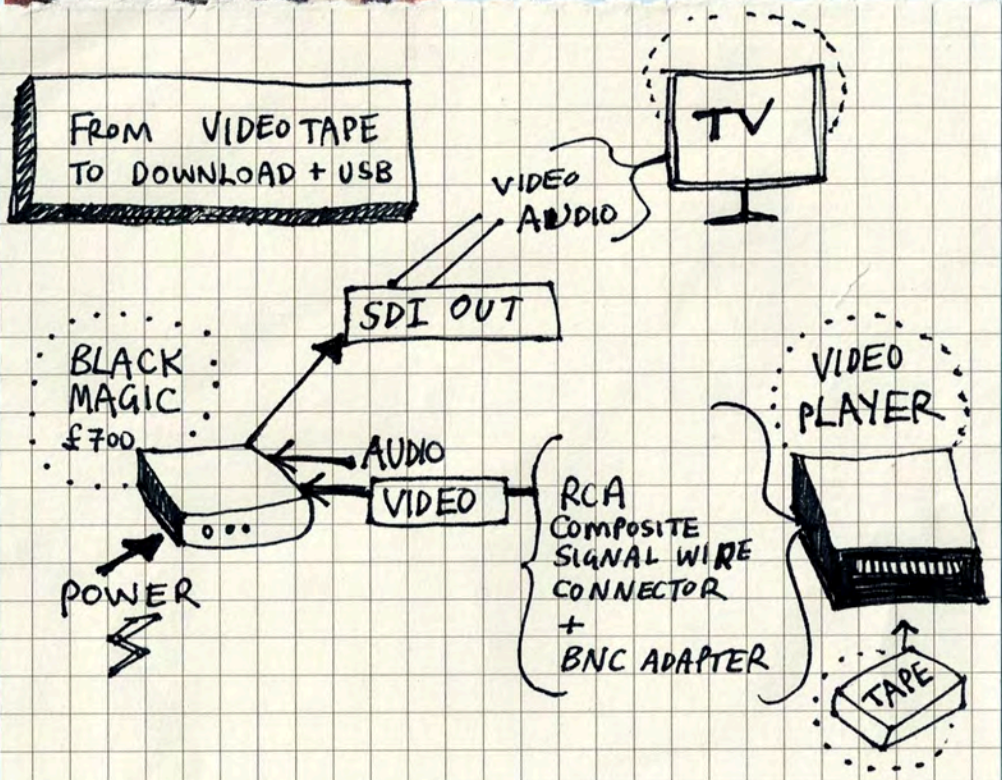 FROM VIDEOTAPE
TO DOWNLOAD + USB
TV
VIDEO
AUDIO
SDI OUT
BLACK
MAGIC
£700
AUDIO
VIDEO
POWER
RCA
COMPOSITE
SIGNAL WIRE
CONNECTOR
+
BNC ADAPTER
VIDEO
PLAYER
TAPE